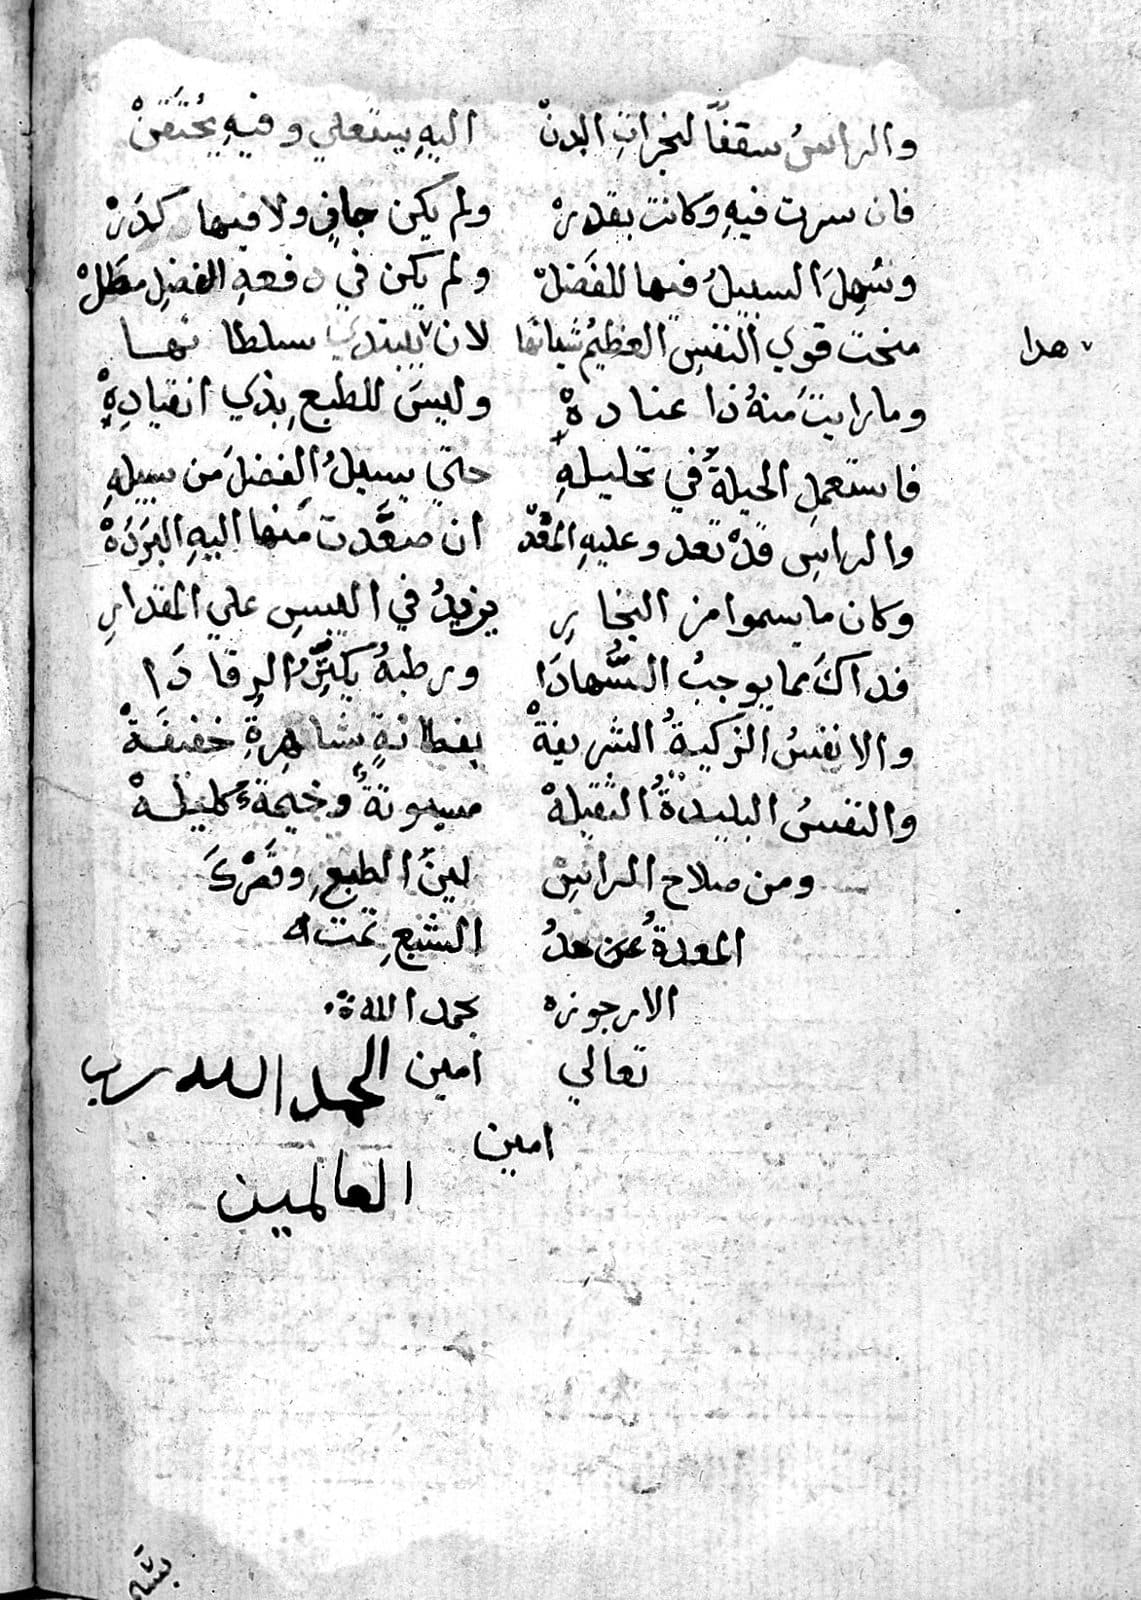 والراسُ سقفاً لبخراتِ البدنْ اليهِ يستعلي وفيهِ يُحتَقَنْ
فان سرت فيهِ وكانت بقدرْ ولم يكن جافٍ ولا فيها كدَرْ
وسُهلَ السبيلُ فيها للفَضلْ ولم يكن في دفعهِ الفضلِ مطَلْ
منحت قوي النفسِ العظيمُ شانها لان يبتدي سلطانها
هدا
وما رايتَ منهُ ذا عنادهْ وليسَ للطبعِ بذي انقيادِهْ
فاستعملِ الحيلةُ في تحليلهِ حتي يسيلُ الفضلَ من سبيلهِ
والراسِ قدْ تعد وعليهِ المعْدّ ان صعَّدت منها اليهِ البرَدَهْ
وكان ما يسموا من البخارِ يزيدُ في اليبسِ علي المقدارِ
فداكَ مما يوجبُ السُّهادَا ورطبهُ يكثِّرُ الرقادَا
والانفسُ الزكيةُ الشريفةْ بفطانةٍ شاهرةِ خفيفَةْ
والنفسُ البليدةُ الثقيلهْ وخيمةٌ كليلهْ
ومن صلاح الراسِ لينُ الطبعِ وقَصْرُكَ
المعدةُ عن حدُ الشبعِ تمت
الارجوزه بحمد الله
تعالي امين الحمد الله رب
امين
العالمين